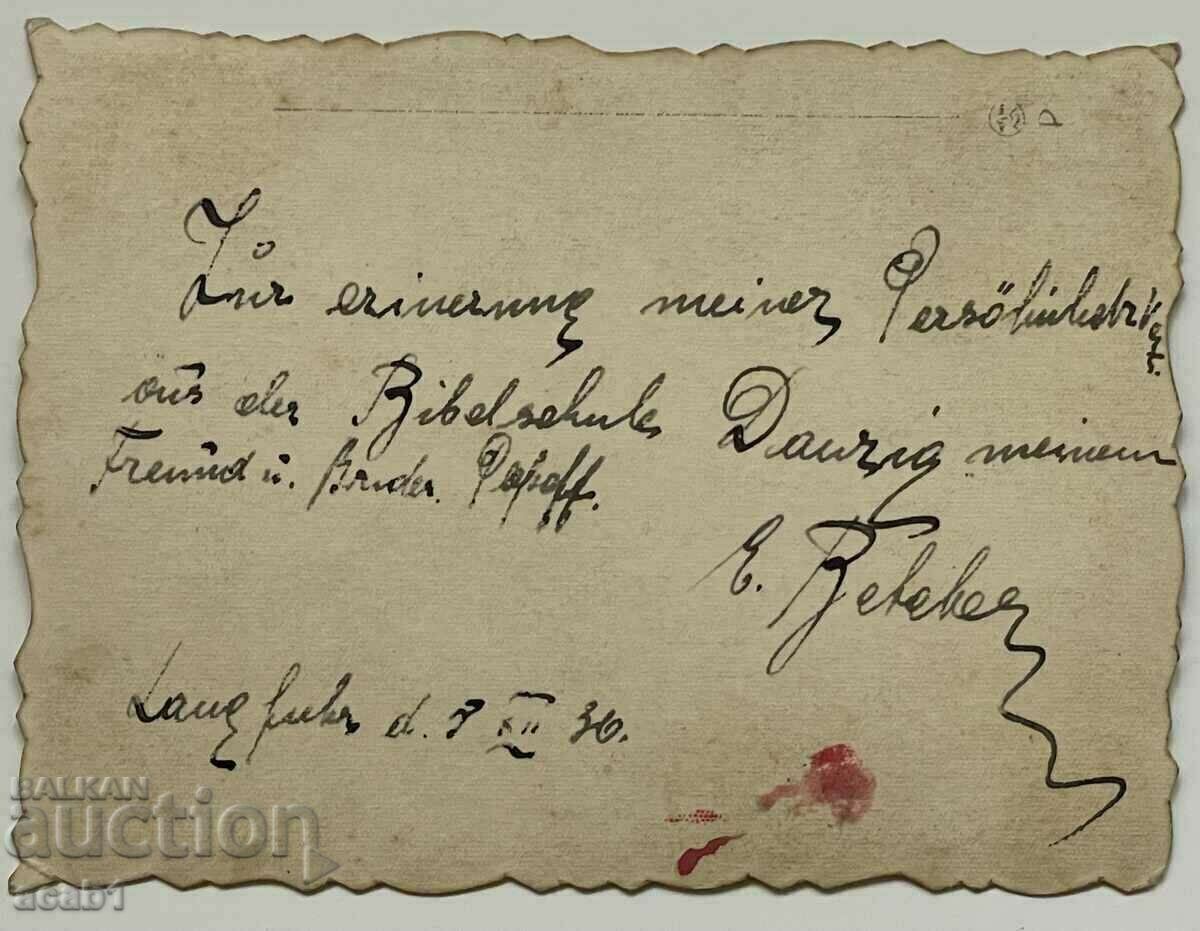 Zur erinerung meiner
aus der Bibelschule Danzig meinem
Freund u. Bruder Popoff.
E.
Langfuhr d. 8 XII 36.
BALKAN
auction
acab1